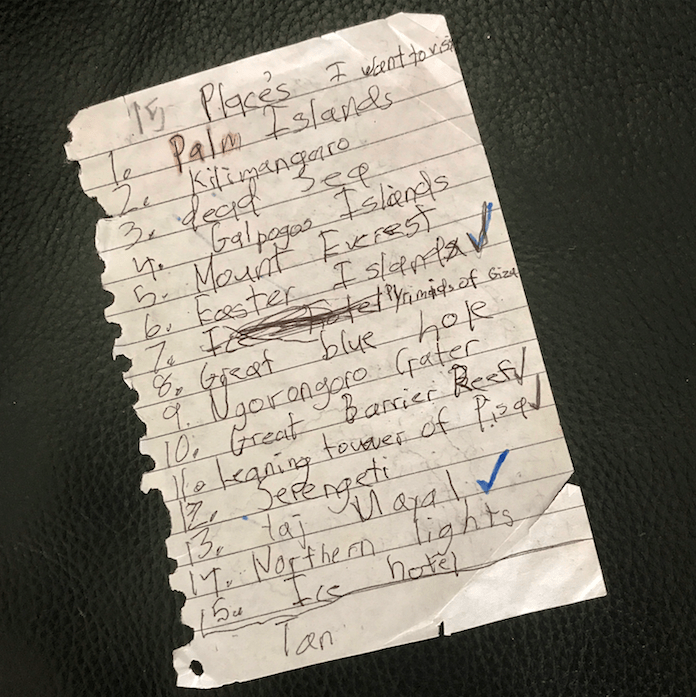 15 Places I want to visit
1. Palm Islands
2. Kilimangaro
3. dead Sea
4. Galpogos Islands
5. Mount Everest
6. Easter Islands ✓
7. Ice hotel Pyrimids of Giza
8. Great blue hole
9. Ngorongoro Crater
10. Great Barrier Reef ✓
11. leaning touwer of Pisa ✓
12. Serengeti
13. taj Mayal ✓
14. Northern lights
15. Ice hotel
Ian